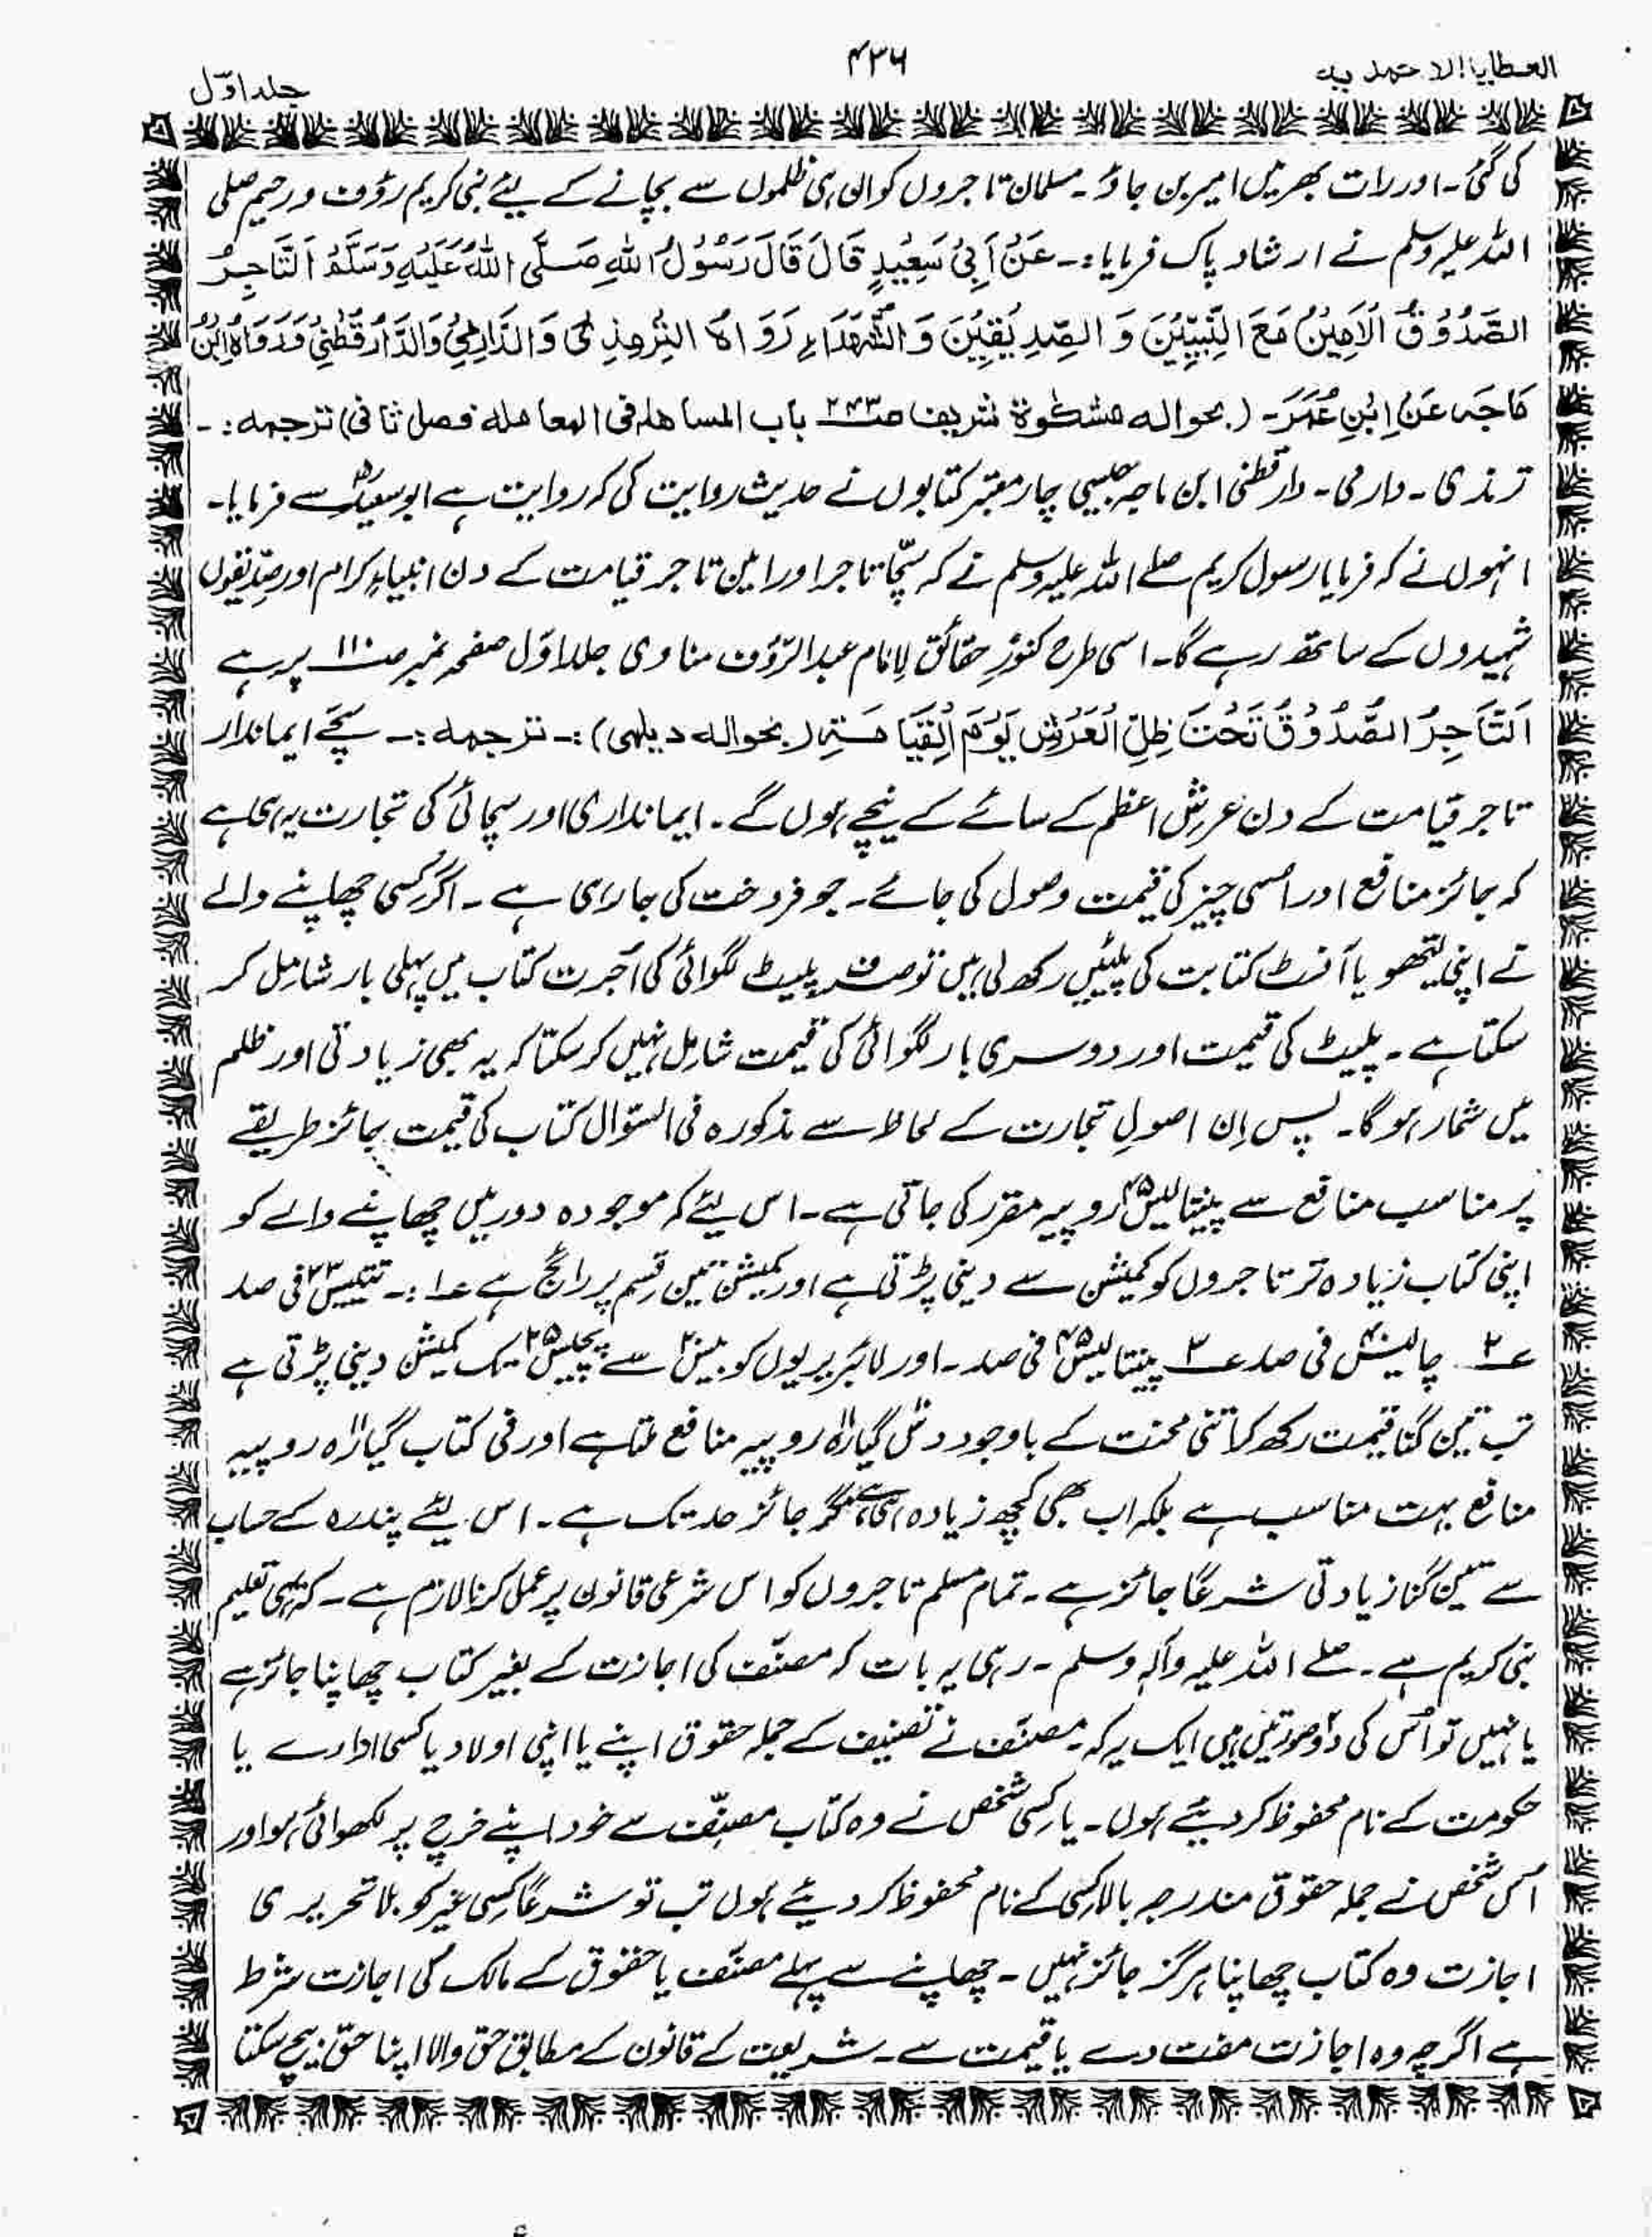 العطایا الاحمدیہ
۴۳۶
جلد اوّل
کی گئی۔ اور رات بھر میں امیر بن جاؤ۔ مسلمان تاجروں کو ان ہی ظلموں سے بچانے کے لیئے نبی کریم رؤف و رحیم صلی
اللہ علیہ وسلم نے ارشاد پاک فرمایا:۔ عَنْ اَبِیْ سَعِیْدٍ قَالَ قَالَ رَسُوْلُ اللہِ صَلَّی اللہُ عَلَیْہِ وَسَلَّمَ اَلتَّاجِرُ
الصَّدُوْقُ الْاَمِیْنُ مَعَ النَّبِیِّیْنَ وَ الصِّدِیْقِیْنَ وَ الشُّھَدَاءِ رَوَاہُ التِّرْمِذِیُّ وَ الدَّارِمِیُّ وَالدَّارُ قُطْنِیُ وَرَوَاہُ ابْنُ
مَاجَہ عَنْ اِبْنِ عُمَرَ۔ (بحوالہ مشکوٰۃ شریف صـ۲۴۳ باب المساھلہ فی المعاملہ فصل ثانی) ترجمہ:۔
ترمذی۔ دارمی۔ دارقطنی ابن ماجہ جیسی چار معتبر کتابوں نے حدیث روایت کی کہ روایت ہے ابو سعیدؓ سے فرمایا۔
انہوں نے کہ فرمایا رسول کریم صلے اللہ علیہ وسلم نے کہ سچّا تاجر اور امین تاجر قیامت کے دن انبیاءِ کرام اور صِدّیقوں
شہیدوں کے ساتھ رہے گا۔ اسی طرح کنوزِ حقائق لِامام عبدالرّؤف مناوی جلد اوّل صفحہ نمبر صـ۱۱۰ پر ہے
اَلتَّاجِرُ الصَّدُوْقُ تَحْتَ ظِلِّ الْعَرْشِ یَوْمَ الْقِیَامَۃِ (بحوالہ دیلمی):۔ ترجمہ:۔ سچے ایماندار
تاجر قیامت کے دن عرشِ اعظم کے سائے کے نیچے ہوں گے۔ ایمانداری اور سچائی کی تجارت یہ ہی ہے
کہ جائز منافع اور اُسی چیز کی قیمت وصول کی جائے۔ جو فروخت کی جا رہی ہے۔ اگر کسی چھاپنے والے
نے اپنی لیتھو یا آفسٹ کتابت کی پلیٹیں رکھ لی ہیں تو صرف پلیٹ لگوائی کی اُجرت کتاب میں پہلی بار شامل کر
سکتا ہے۔ پلیٹ کی قیمت اور دوسری بار لگوائی کی قیمت شامل نہیں کر سکتا کہ یہ بھی زیادتی اور ظلم
میں شمار ہوگا۔ پس اِن اصولِ تجارت کے لحاظ سے مذکورہ فی السّوال کتاب کی قیمت جائز طریقے
پر مناسب منافع سے پینتالیس۴۵ روپیہ مقرر کی جاتی ہے۔ اس لئے کہ موجودہ دور میں چھاپنے والے کو
اپنی کتاب زیادہ تر تاجروں کو کمیشن سے دینی پڑتی ہے اور کمیشن تین قِسم پر رائج ہے ؏۱:۔ تینتیس۳۳ فی صد
؏۲ چالیس۴۰ فی صد ؏۳ پینتالیس۴۵ فی صد۔ اور لائبریریوں کو بیس۲۰ سے پچیس۲۵ تک کمیشن دینی پڑتی ہے
تب تین گنا قیمت رکھ کر اتنی محنت کے باوجود دس گیارہ روپیہ منافع ملتا ہے اور فی کتاب گیارہ روپیہ
منافع بہت مناسب ہے بلکہ اب بھی کچھ زیادہ ہی ہے مگر جائز حد تک ہے۔ اس لیئے پندرہ کے حساب
سے تین گنا زیادتی شرعًا جائز ہے۔ تمام مسلم تاجروں کو اس شرعی قانون پر عمل کرنا لازم ہے۔ کہ یہی تعلیم
نبی کریم ہے۔ صلے اللہ علیہ وآلہ وسلم۔ رہی یہ بات کہ مصنّف کی اجازت کے بغیر کتاب چھاپنا جائز ہے
یا نہیں تو اُس کی دو صورتیں ہیں ایک یہ کہ مصنّف نے تصنیف کے جملہ حقوق اپنے یا اپنی اولاد یا کسی ادارے یا
حکومت کے نام محفوظ کر دیئے ہوں۔ یا کسی شخص نے وہ کتاب مصنّف سے خود اپنے خرچ پر لکھوائی ہو اور
اُس شخص نے جملہ حقوق مندرجہ بالا کسی کے نام محفوظ کر دیئے ہوں تب تو شرعًا کسی غیر کو بلا تحریری
اجازت وہ کتاب چھاپنا ہرگز جائز نہیں۔ چھاپنے سے پہلے مصنّف یا حقوق کے مالک کی اجازت شرط
ہے اگرچہ وہ اجازت مفت دے یا قیمت سے۔ شریعت کے قانون کے مطابق حق والا اپنا حق بیچ سکتا